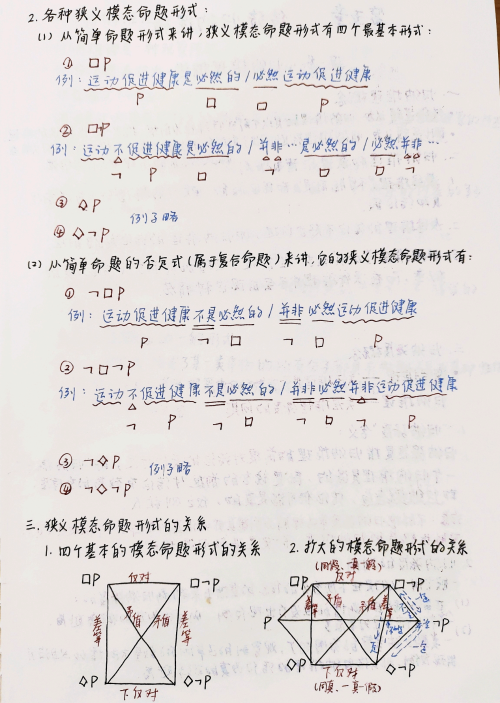 2.各种狭义模态命题形式:
(1)从简单命题形式来讲,狭义模态命题形式有四个最基本形式:
① □P
例:运动促进健康是必然的/必然运动促进健康
P □ □ P
② □P
例:运动不促进健康是必然的/并非…是必然的/必然并非…
¬ P □ ¬ □ □ ¬
③ ◇P
例子略
④ ◇¬P
(2)从简单命题的否定式(属于复合命题)来讲,它的狭义模态命题形式有:
① ¬□P
例:运动促进健康不是必然的/并非必然运动促进健康
P ¬ □ ¬ □ P
② ¬□¬P
例:运动不促进健康不是必然的/并非必然并非运动促进健康
¬ P ¬ □ ¬ □ ¬ P
③ ¬◇P
例子略
④ ¬◇¬P
三.狭义模态命题形式的关系
1.四个基本的模态命题形式的关系
2.扩大的模态命题形式的关系
□P 反对 □¬P
差等 矛盾 矛盾 差等
◇P 下反对 ◇¬P
(同假、一真一假)
□P 反对 □¬P
差等 矛盾 矛盾 差等
P ¬P
◇P 下反对 ◇¬P
(同真、一真一假)